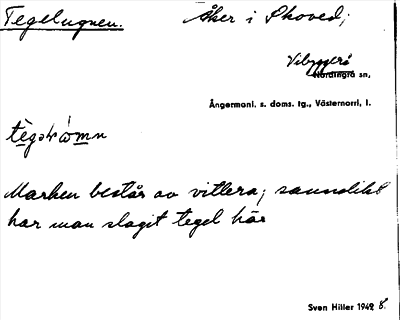 Tegelugnen. Åker i Skoved;
Vibyggerå
Nordingrå sn,
Ångermanl. s. doms. tg., Västernorrl. l.
Marken består av vitlera; sannolikt
har man slagit tegel här
Sven Hiller 1942 8.